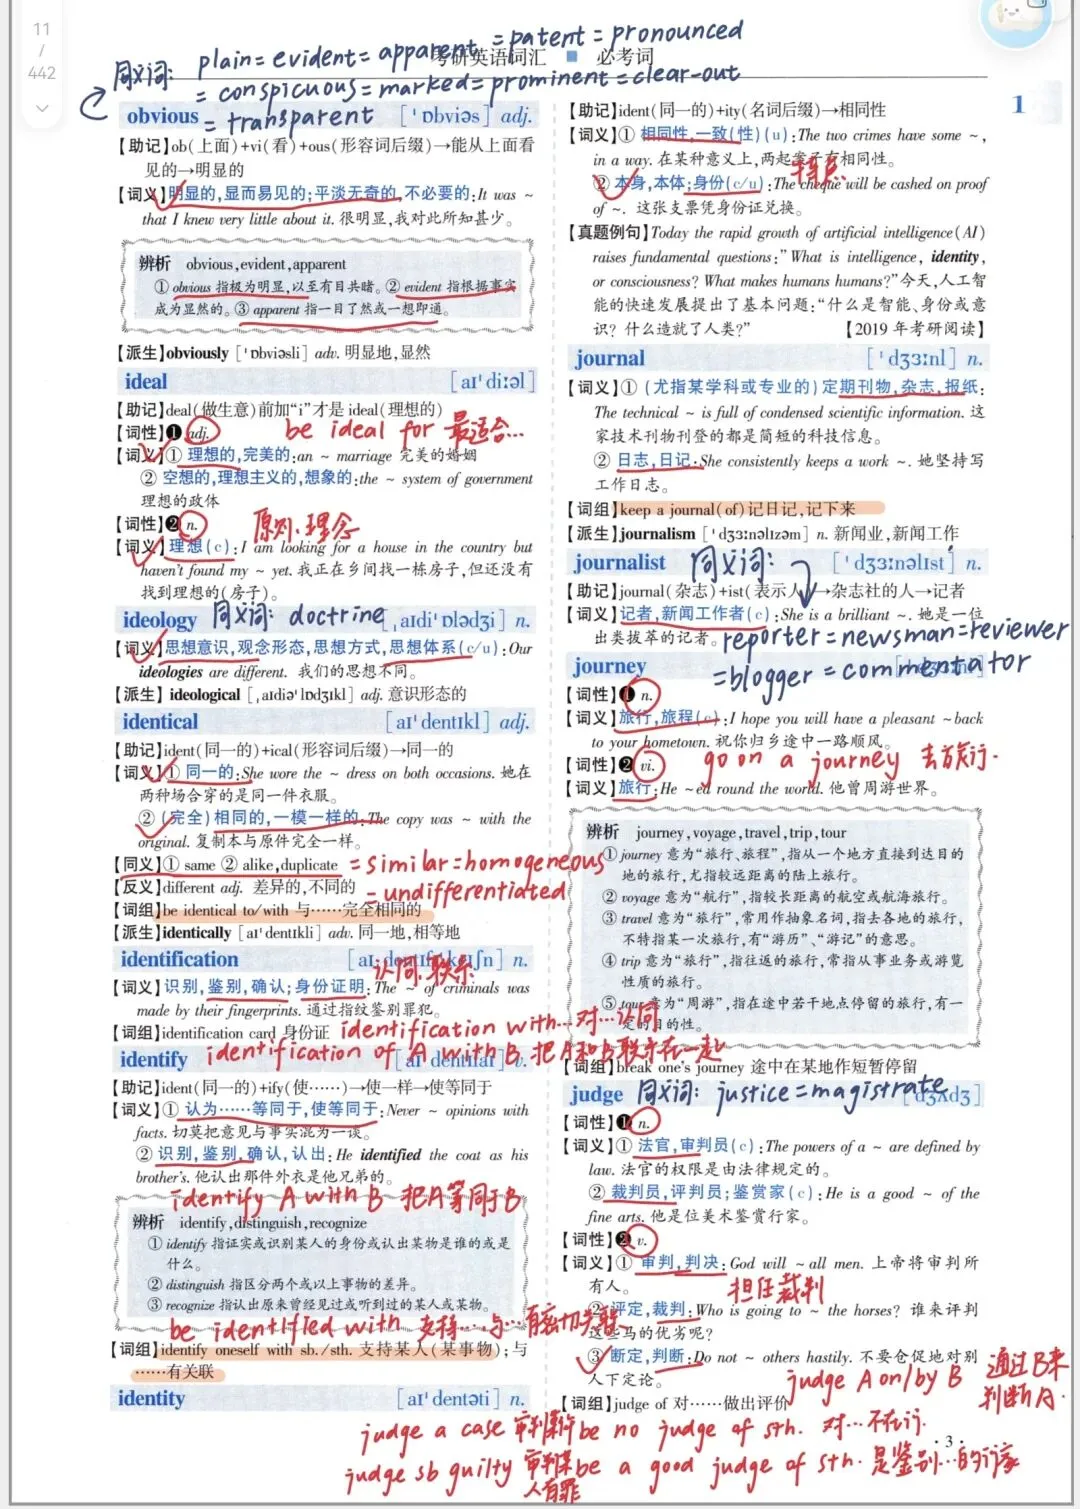 11
/
442
同义词: plain = evident = apparent = patent = pronounced
考研英语词汇 ■ 必考词
= conspicuous = marked = prominent = clear-out
= transparent
1
obvious [ˈɒbviəs] adj.
【助记】ob(上面)+vi(看)+ous(形容词后缀)→能从上面看
见的→明显的
【词义】明显的,显而易见的;平淡无奇的,不必要的:It was ~
that I knew very little about it. 很明显,我对此所知甚少。
辨析 obvious,evident,apparent
① obvious 指极为明显,以至有目共睹。② evident 指根据事实
成为显然的。③ apparent 指一目了然或一想即通。
【派生】obviously [ˈɒbviəsli] adv. 明显地,显然
ideal [aɪˈdiːəl]
【助记】deal(做生意)前加“i”才是 ideal(理想的)
【词性】❶ adj. be ideal for 最适合…
【词义】① 理想的,完美的:an ~ marriage 完美的婚姻
② 空想的,理想主义的,想象的:the ~ system of government
理想的政体
【词性】❷ n. 原则.理念
【词义】理想(c):I am looking for a house in the country but
haven't found my ~ yet. 我正在乡间找一栋房子,但还没有
找到理想的(房子)。
ideology 同义词: doctrine [ˌaɪdiˈɒlədʒi] n.
【词义】思想意识,观念形态,思想方式,思想体系(c/u):Our
ideologies are different. 我们的思想不同。
【派生】ideological [ˌaɪdiəˈlɒdʒɪkl] adj. 意识形态的
identical [aɪˈdentɪkl] adj.
【助记】ident(同一的)+ical(形容词后缀)→同一的
【词义】① 同一的:She wore the ~ dress on both occasions. 她在
两种场合穿的是同一件衣服。
② (完全)相同的,一模一样的:The copy was ~ with the
original. 复制本与原件完全一样。
【同义】① same ② alike,duplicate = similar = homogeneous
【反义】different adj. 差异的,不同的 = undifferentiated
【词组】be identical to/with 与……完全相同的
【派生】identically [aɪˈdentɪkli] adv. 同一地,相等地
identification n.
认同.联系
【词义】识别,鉴别,确认;身份证明:The ~ of criminals was
made by their fingerprints. 通过指纹鉴别罪犯。
【词组】identification card 身份证 identification with…对…认同
identify identification of A with B 把A和B联系在一起
【助记】ident(同一的)+ify(使……)→使一样→使等同于
【词义】① 认为……等同于,使等同于:Never ~ opinions with
facts. 切莫把意见与事实混为一谈。
② 识别,鉴别,确认,认出:He identified the coat as his
brother's. 他认出那件外衣是他兄弟的。
identify A with B 把A等同于B
辨析 identify,distinguish,recognize
① identify 指证实或识别某人的身份或认出某物是谁的或是
什么。
② distinguish 指区分两个或以上事物的差异。
③ recognize 指认出原来曾经见过或听到过的某人或某物。
be identified with 支持…,与…有密切关联
【词组】identify oneself with sb./sth. 支持某人(某事物);与
……有关联
identity [aɪˈdentəti] n.
【助记】ident(同一的)+ity(名词后缀)→相同性
【词义】① 相同性,一致(性)(u):The two crimes have some ~,
in a way. 在某种意义上,两起案子有相同性。
特点
② 本身,本体;身份(c/u):The cheque will be cashed on proof
of ~. 这张支票凭身份证兑换。
【真题例句】Today the rapid growth of artificial intelligence(AI)
raises fundamental questions:" What is intelligence, identity,
or consciousness? What makes humans humans?" 今天,人工智
能的快速发展提出了基本问题:“什么是智能、身份或意
识? 什么造就了人类?” 【2019 年考研阅读】
journal [ˈdʒɜːnl] n.
【词义】① (尤指某学科或专业的)定期刊物,杂志,报纸:
The technical ~ is full of condensed scientific information. 这
家技术刊物刊登的都是简短的科技信息。
② 日志,日记:She consistently keeps a work ~. 她坚持写
工作日志。
【词组】keep a journal(of)记日记,记下来
【派生】journalism [ˈdʒɜːnəlɪzəm] n. 新闻业,新闻工作
journalist 同义词: [ˈdʒɜːnəlɪst] n.
【助记】journal(杂志)+ist(表示人)→杂志社的人→记者
【词义】记者,新闻工作者(c):She is a brilliant ~. 她是一位
出类拔萃的记者。 reporter = newsman = reviewer
journey = blogger = commentator
【词性】❶ n.
【词义】旅行,旅程(c):I hope you will have a pleasant ~ back
to your hometown. 祝你归乡途中一路顺风。
【词性】❷ vi. go on a journey 去旅行.
【词义】旅行:He ~ed round the world. 他曾周游世界。
辨析 journey,voyage,travel,trip,tour
① journey 意为“旅行、旅程”,指从一个地方直接到达目的
地的旅行,尤指较远距离的陆上旅行。
② voyage 意为“航行”,指较长距离的航空或航海旅行。
③ travel 意为“旅行”,常用作抽象名词,指去各地的旅行,
不特指某一次旅行,有“游历”、“游记”的意思。
④ trip 意为“旅行”,指往返的旅行,常指从事业务或游览
性质的旅行。
⑤ tour 意为“周游”,指在途中若干地点停留的旅行,有一
定的目的性。
【词组】break one's journey 途中在某地作短暂停留
judge 同义词: justice = magistrate [dʒʌdʒ]
【词性】❶ n.
【词义】① 法官,审判员(c):The powers of a ~ are defined by
law. 法官的权限是由法律规定的。
② 裁判员,评判员;鉴赏家(c):He is a good ~ of the
fine arts. 他是位美术鉴赏行家。
【词性】❷ v.
【词义】① 审判,判决:God will ~ all men. 上帝将审判所
有人。 担任裁判
② 评定,裁判:Who is going to ~ the horses? 谁来评判
这些马的优劣呢?
③ 断定,判断:Do not ~ others hastily. 不要仓促地对别
人下定论。 judge A on/by B 通过B来
判断A.
【词组】judge of 对……做出评价
judge a case 审判案件 be no judge of sth. 对…不在行.
· 3 ·
judge sb guilty 审判某人有罪 be a good judge of sth. 是鉴别…的行家